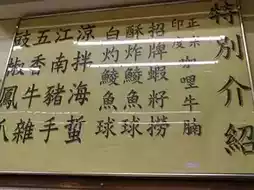 特別介紹
正宗
印度咖哩牛腩
招牌蝦籽撈
酥炸鯪魚球
白灼鯪魚球
涼拌海蜇
江南豬手
五香牛雜
豉椒鳳爪